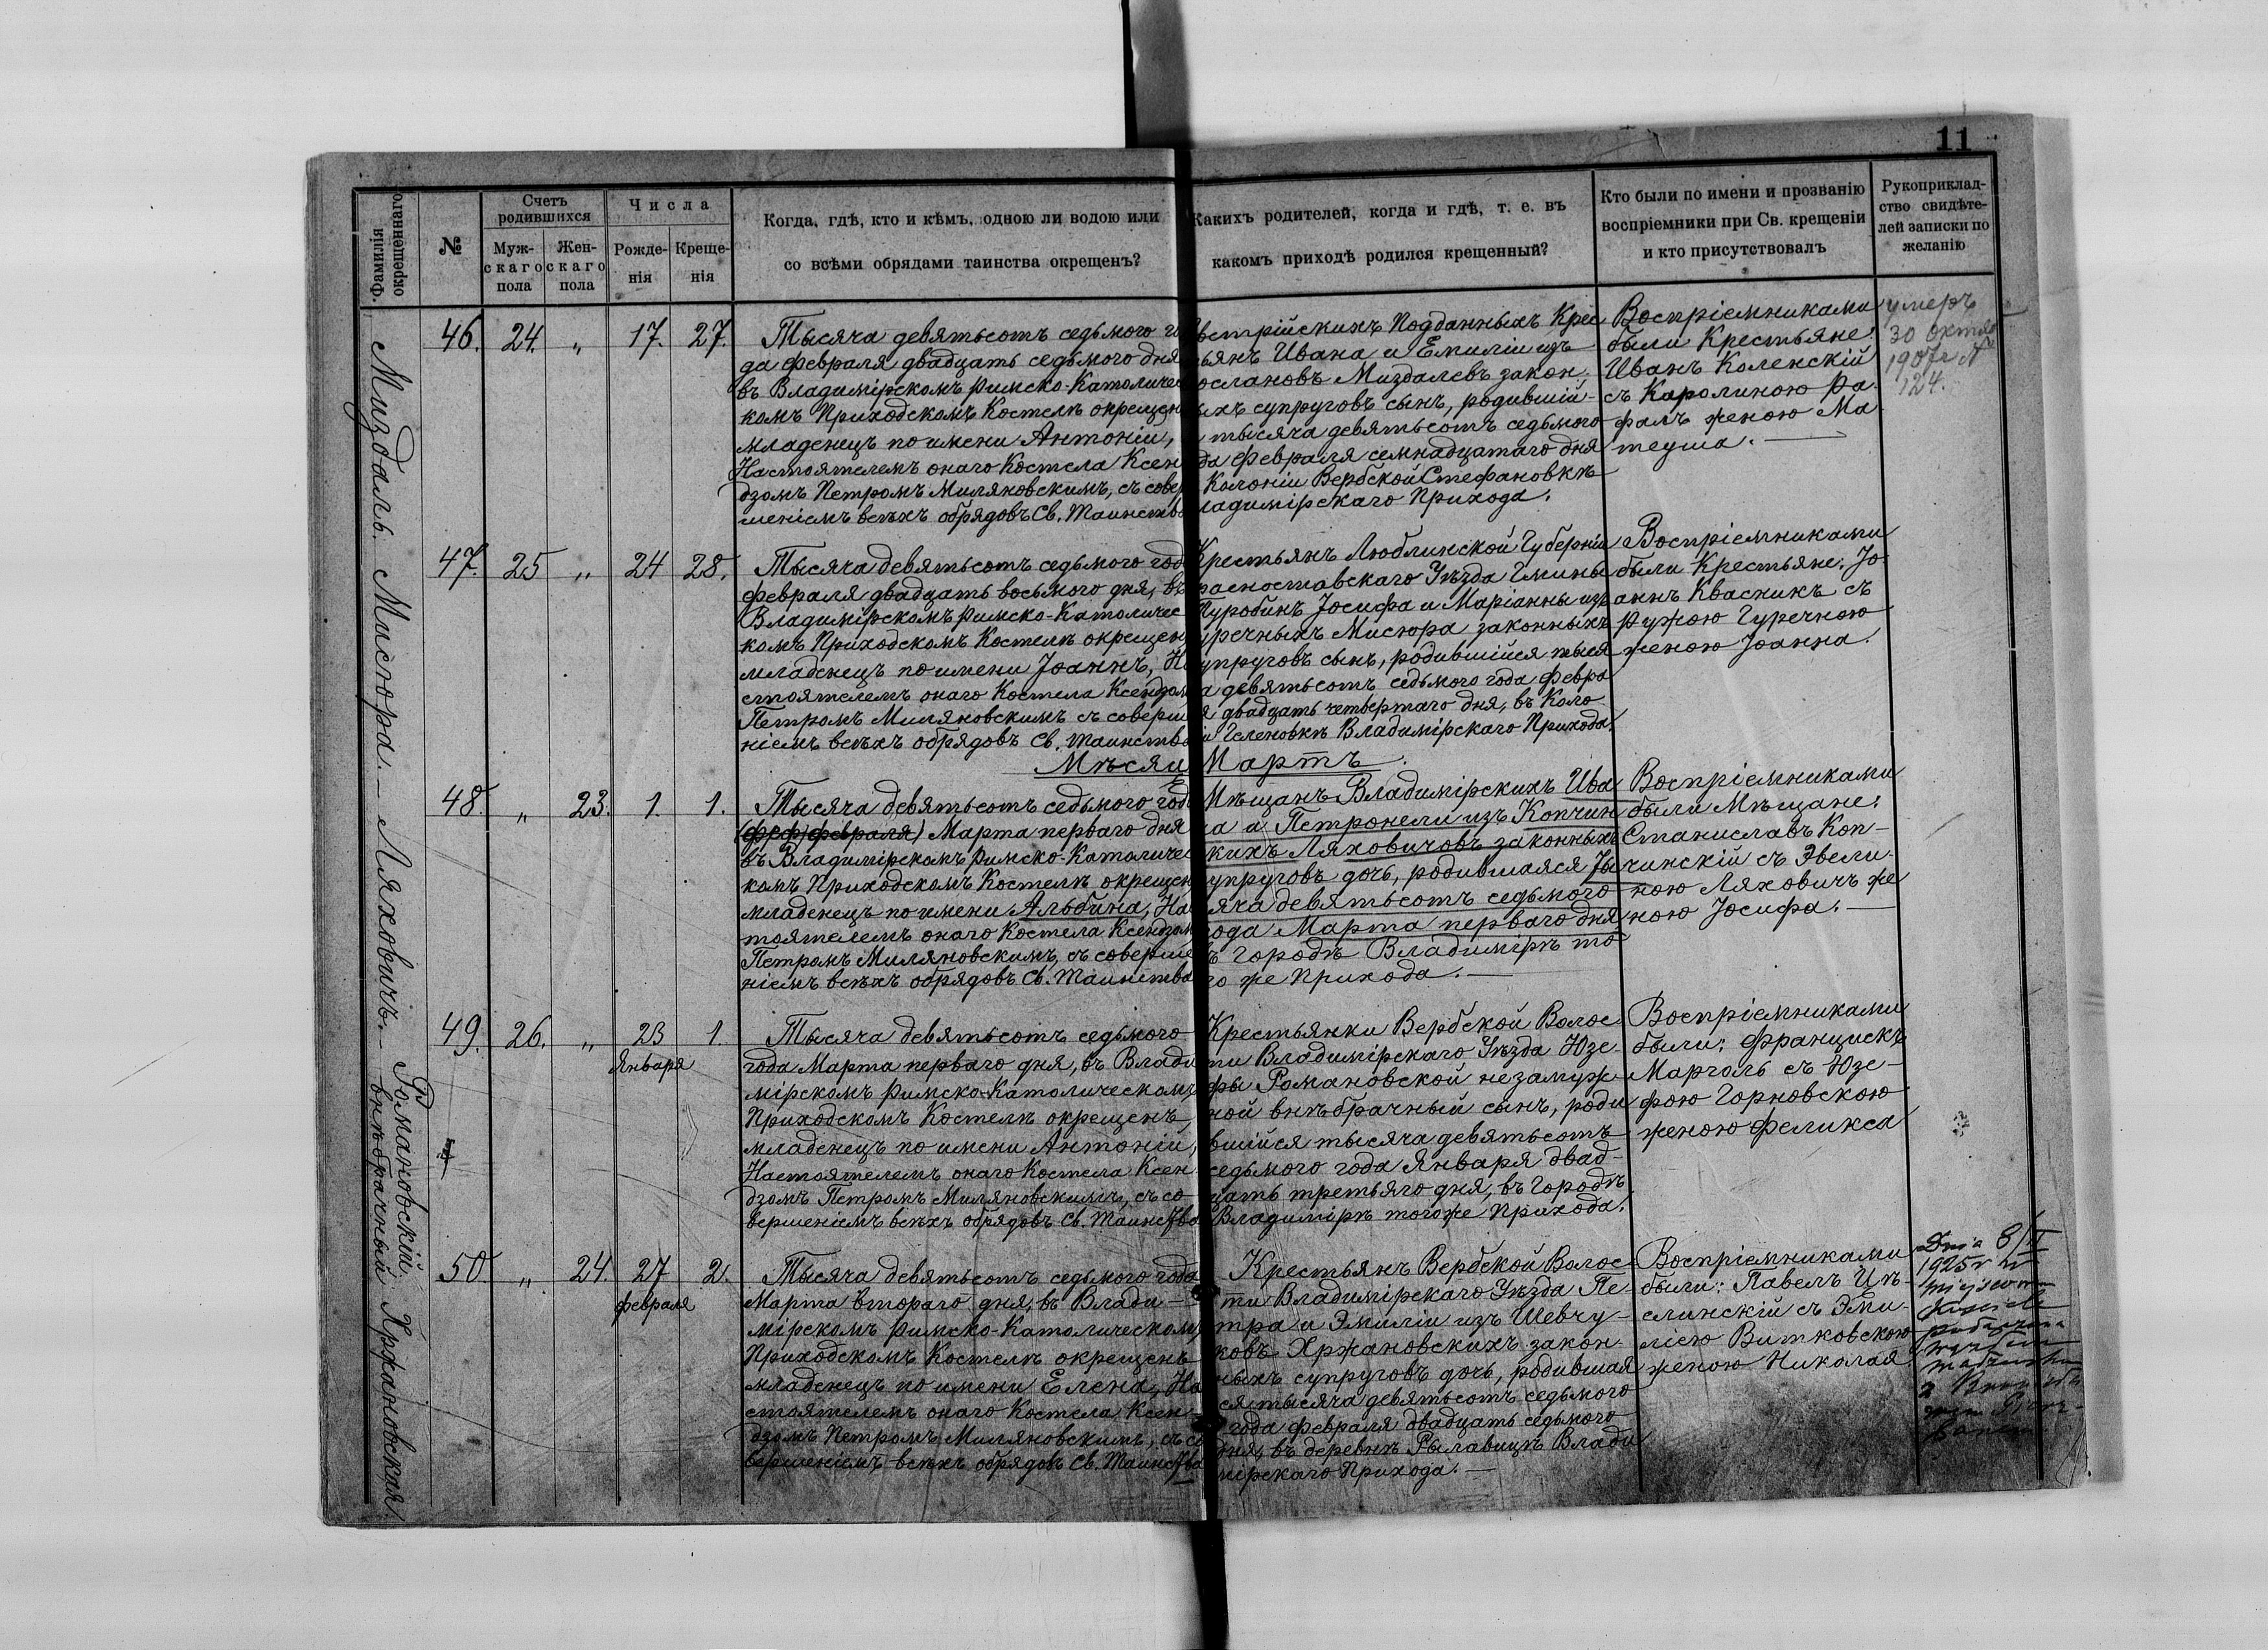 11
Фамилія окрещеннаго
№
Счетъ родившихся
Мужскаго пола
Женскаго пола
Числа
Рожденія
Крещенія
Когда, гдѣ, кто и кѣмъ, одною ли водою или
со всѣми обрядами таинства окрещенъ?
Какихъ родителей, когда и гдѣ, т. е. въ
какомъ приходѣ родился крещенный?
Кто были по имени и прозванію
воспріемники при Св. крещеніи
и кто присутствовалъ
Рукоприклад-
ство свидѣте-
лей записки по
желанію
Миздаль.
46. 24. „ 17. 27.
Тысяча девятьсотъ седьмого го
да февраля двадцать седьмого дня
въ Владимірскомъ Римско-Католичес
комъ Приходскомъ Костелѣ окрещен
младенецъ по имени Антоній,
Настоятелемъ онаго Костела Ксен
дзомъ Петромъ Миляновскимъ, съ совер
шеніемъ всѣхъ обрядовъ Св. Таинства
встрійскихъ Подданныхъ Крес
тьянъ Ивана и Емиліи изъ
ослановъ Миздалевъ закон.
ыхъ супруговъ сынъ, родившій-
тысяча девятьсотъ седьмого
да февраля семнадцатаго дня
Колоніи Вербской Стефановкѣ
ладимірскаго Прихода.
Воспріемниками
были Крестьяне:
Иванъ Коленскій
съ Каролиною Ра-
фалъ женою Ма-
теуша.
умеръ
30 октяб
1907 г №
124.
Мисюра.
47. 25 „ 24 28.
Тысяча девятьсотъ седьмого год
февраля двадцать восьмого дня, въ
Владимірскомъ Римско-Католичес
комъ Приходскомъ Костелѣ окрещен
младенецъ по имени Іоаннъ, На
стоятелемъ онаго Костела Ксендзом
Петромъ Миляновскимъ съ соверше
ніемъ всѣхъ обрядовъ Св. Таинства
Крестьянъ Люблинской Губерніи
расноставскаго Уѣзда Гмины
Туробинъ Іосифа и Маріанны изъ
уречныхъ Мисюра законныхъ
упруговъ сынъ, родившійся тыся
а девятьсотъ седьмого года Февра
я двадцать четвертаго дня, въ Коло
и Геленовкѣ Владимірскаго Прихода.
Воспріемниками
были Крестьяне: Іо-
аннъ Квасникъ съ
Ружою Гуречною
женою Іоанна.
Мѣсяц Мартъ.
Ляховичъ.
48. „ 23. 1. 1.
Тысяча девятьсотъ седьмого год
(феф февраля) Марта перваго дня
въ Владимірскомъ Римско-Католичес
комъ Приходскомъ Костелѣ окрещен
младенецъ по имени Альбина, Нас
тоятелемъ онаго Костела Ксендзом
Петромъ Миляновскимъ, съ соверше
ніемъ всѣхъ обрядовъ Св. Таинства
Мѣщанъ Владимірскихъ Ива
на и Петронели изъ Копчин
скихъ Ляховичовъ законныхъ
упруговъ дочь, родившаяся Ты
яча девятьсотъ седьмого
ода Марта перваго дня
ъ Городѣ Владимірѣ то
го же Прихода.
Воспріемниками
были Мѣщане:
Станиславъ Коп-
чинскій съ Эвели-
ною Ляховичъ же
ною Іосифа.
Романовскій
внѣбрачный
49. 26. „ 23 1.
Января
Тысяча девятьсотъ седьмого
года Марта перваго дня, въ Влади
мірскомъ Римско-Католическомъ
Приходскомъ Костелѣ окрещенъ
младенецъ по имени Антоній,
Настоятелемъ онаго Костела Ксен
дзомъ Петромъ Миляновскимъ, съ со
вершеніемъ всѣхъ обрядовъ Св. Таинства
Крестьянки Вербской Волос-
ти Владимірскаго Уѣзда Юзе-
фы Романовской незамуж-
ной внѣбрачный сынъ, роди
вшійся тысяча девятьсотъ
седьмого года Января двад-
цать третьяго дня, въ Городѣ
Владимірѣ того же Прихода.
Воспріемниками
были: Францискъ
Марголь съ Юзе-
фою Горновскою
женою Феликса
Хржановская
50. „ 24. 27 2.
февраля
Тысяча девятьсотъ седьмого года
Марта второго дня, въ Влади-
мірскомъ Римско-Католическомъ
Приходскомъ Костелѣ окрещенъ
младенецъ по имени Елена, На
стоятелемъ онаго Костела Ксен-
дзомъ Петромъ Миляновскимъ, съ со
вершеніемъ всѣхъ обрядовъ Св. Таинства
Крестьянъ Вербской Волос-
ти Владимірскаго Уѣзда Пе-
тра и Эмиліи изъ Шевчу-
ковъ Хржановскихъ закон-
ныхъ супруговъ дочь, родившая
ся тысяча девятьсотъ седьмого
года февраля двадцать седьмого
дня, въ деревнѣ Рылавицѣ Влади
мірскаго Прихода.
Воспріемниками
были: Павелъ Цѣ-
слинскій съ Эми-
ліею Витковскою
женою Николая.
Dnia 8/II
1925 r w
miejscowym
Kościele